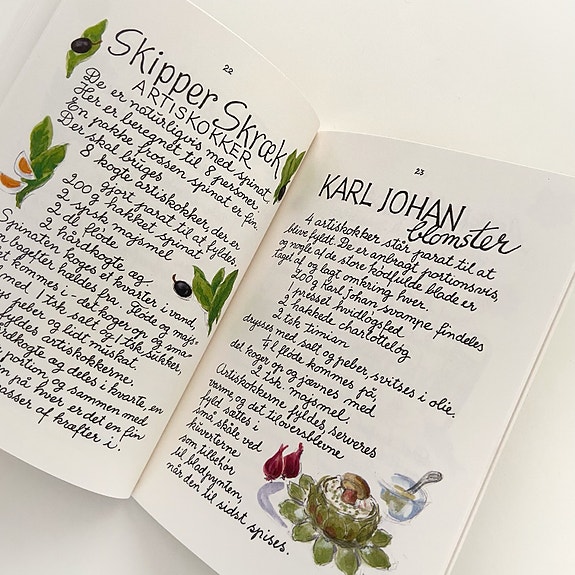 22
Skipper Skræk
ARTISKOKKER
De er naturligvis med spinat
Her er beregnet til 8 personer.
En pakke frossen spinat er fin
Der skal bruges
8 kogte artiskokker, der er
gjort parat til at fyldes,
200 g hakket spinat
2 spsk majsmel
2 dl fløde
2 hårdkogte æg
Spinaten koges et kvarter i vand,
bagefter hældes fra. Fløde og majs
kommes i - det koger op og sma-
peber og lidt muskat.
med 1 tsk salt og 1 tsk sukker,
fyldes artiskokkerne.
kogte og deles i kvarte, en
portion, og sammen med
på hver er det en fin
af krafter i.
23
KARL JOHAN
blomster
4 artiskokker står parat til at
blive fyldt. De er anbragt portionsvis,
og nogle af de store kødfulde blade er
taget af og lagt omkring hver.
200 g Karl Johan svampe findeles
1 presset hvidløgsfed
2 hakkede charlotteløg
2 tsk timian
drysses med salt og peber, svitses i olie.
4 dl fløde kommes på,
det koger op og jævnes med
2 tsk majsmel
Artiskokkerne fyldes, serveres
varme, og det tiloversblevne
fyld sættes i
små skåle ved
kuverterne
som tilbehør
til bladpynten,
når den til sidst spises.